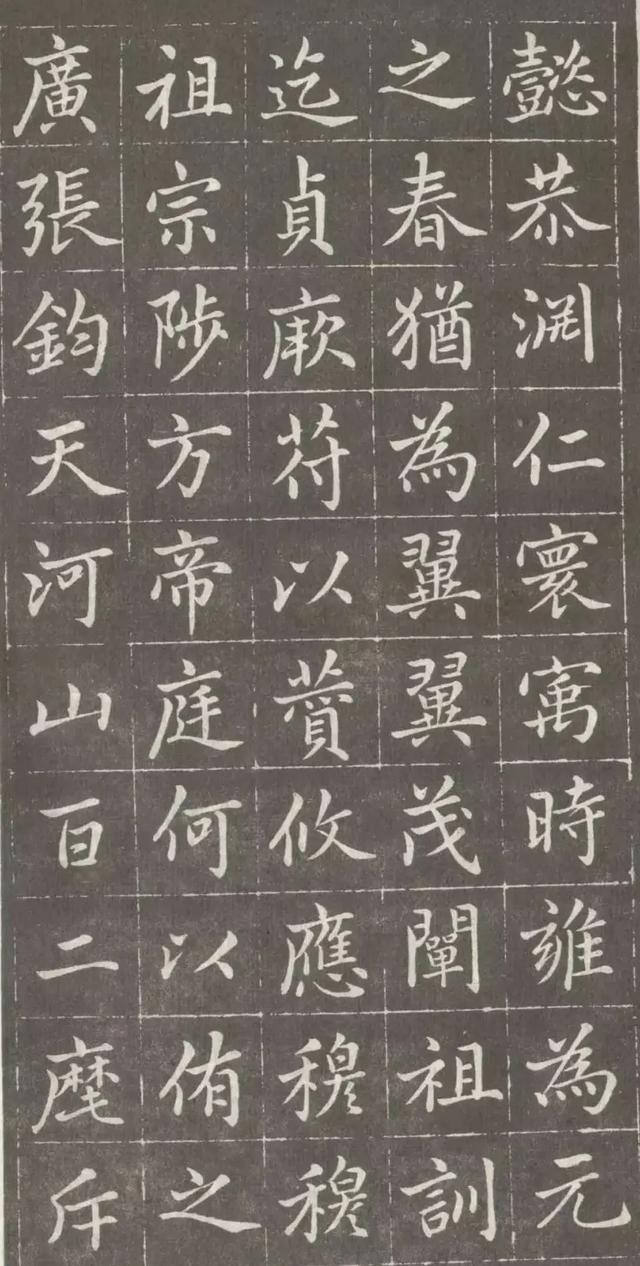 懿恭渊仁寰寓時雍為元
之春猶為翼翼茂闡祖訓
迄貞厥符以蕡攸應穆穆
祖宗陟方帝庭何以侑之
廣張鈞天河山百二麾斥